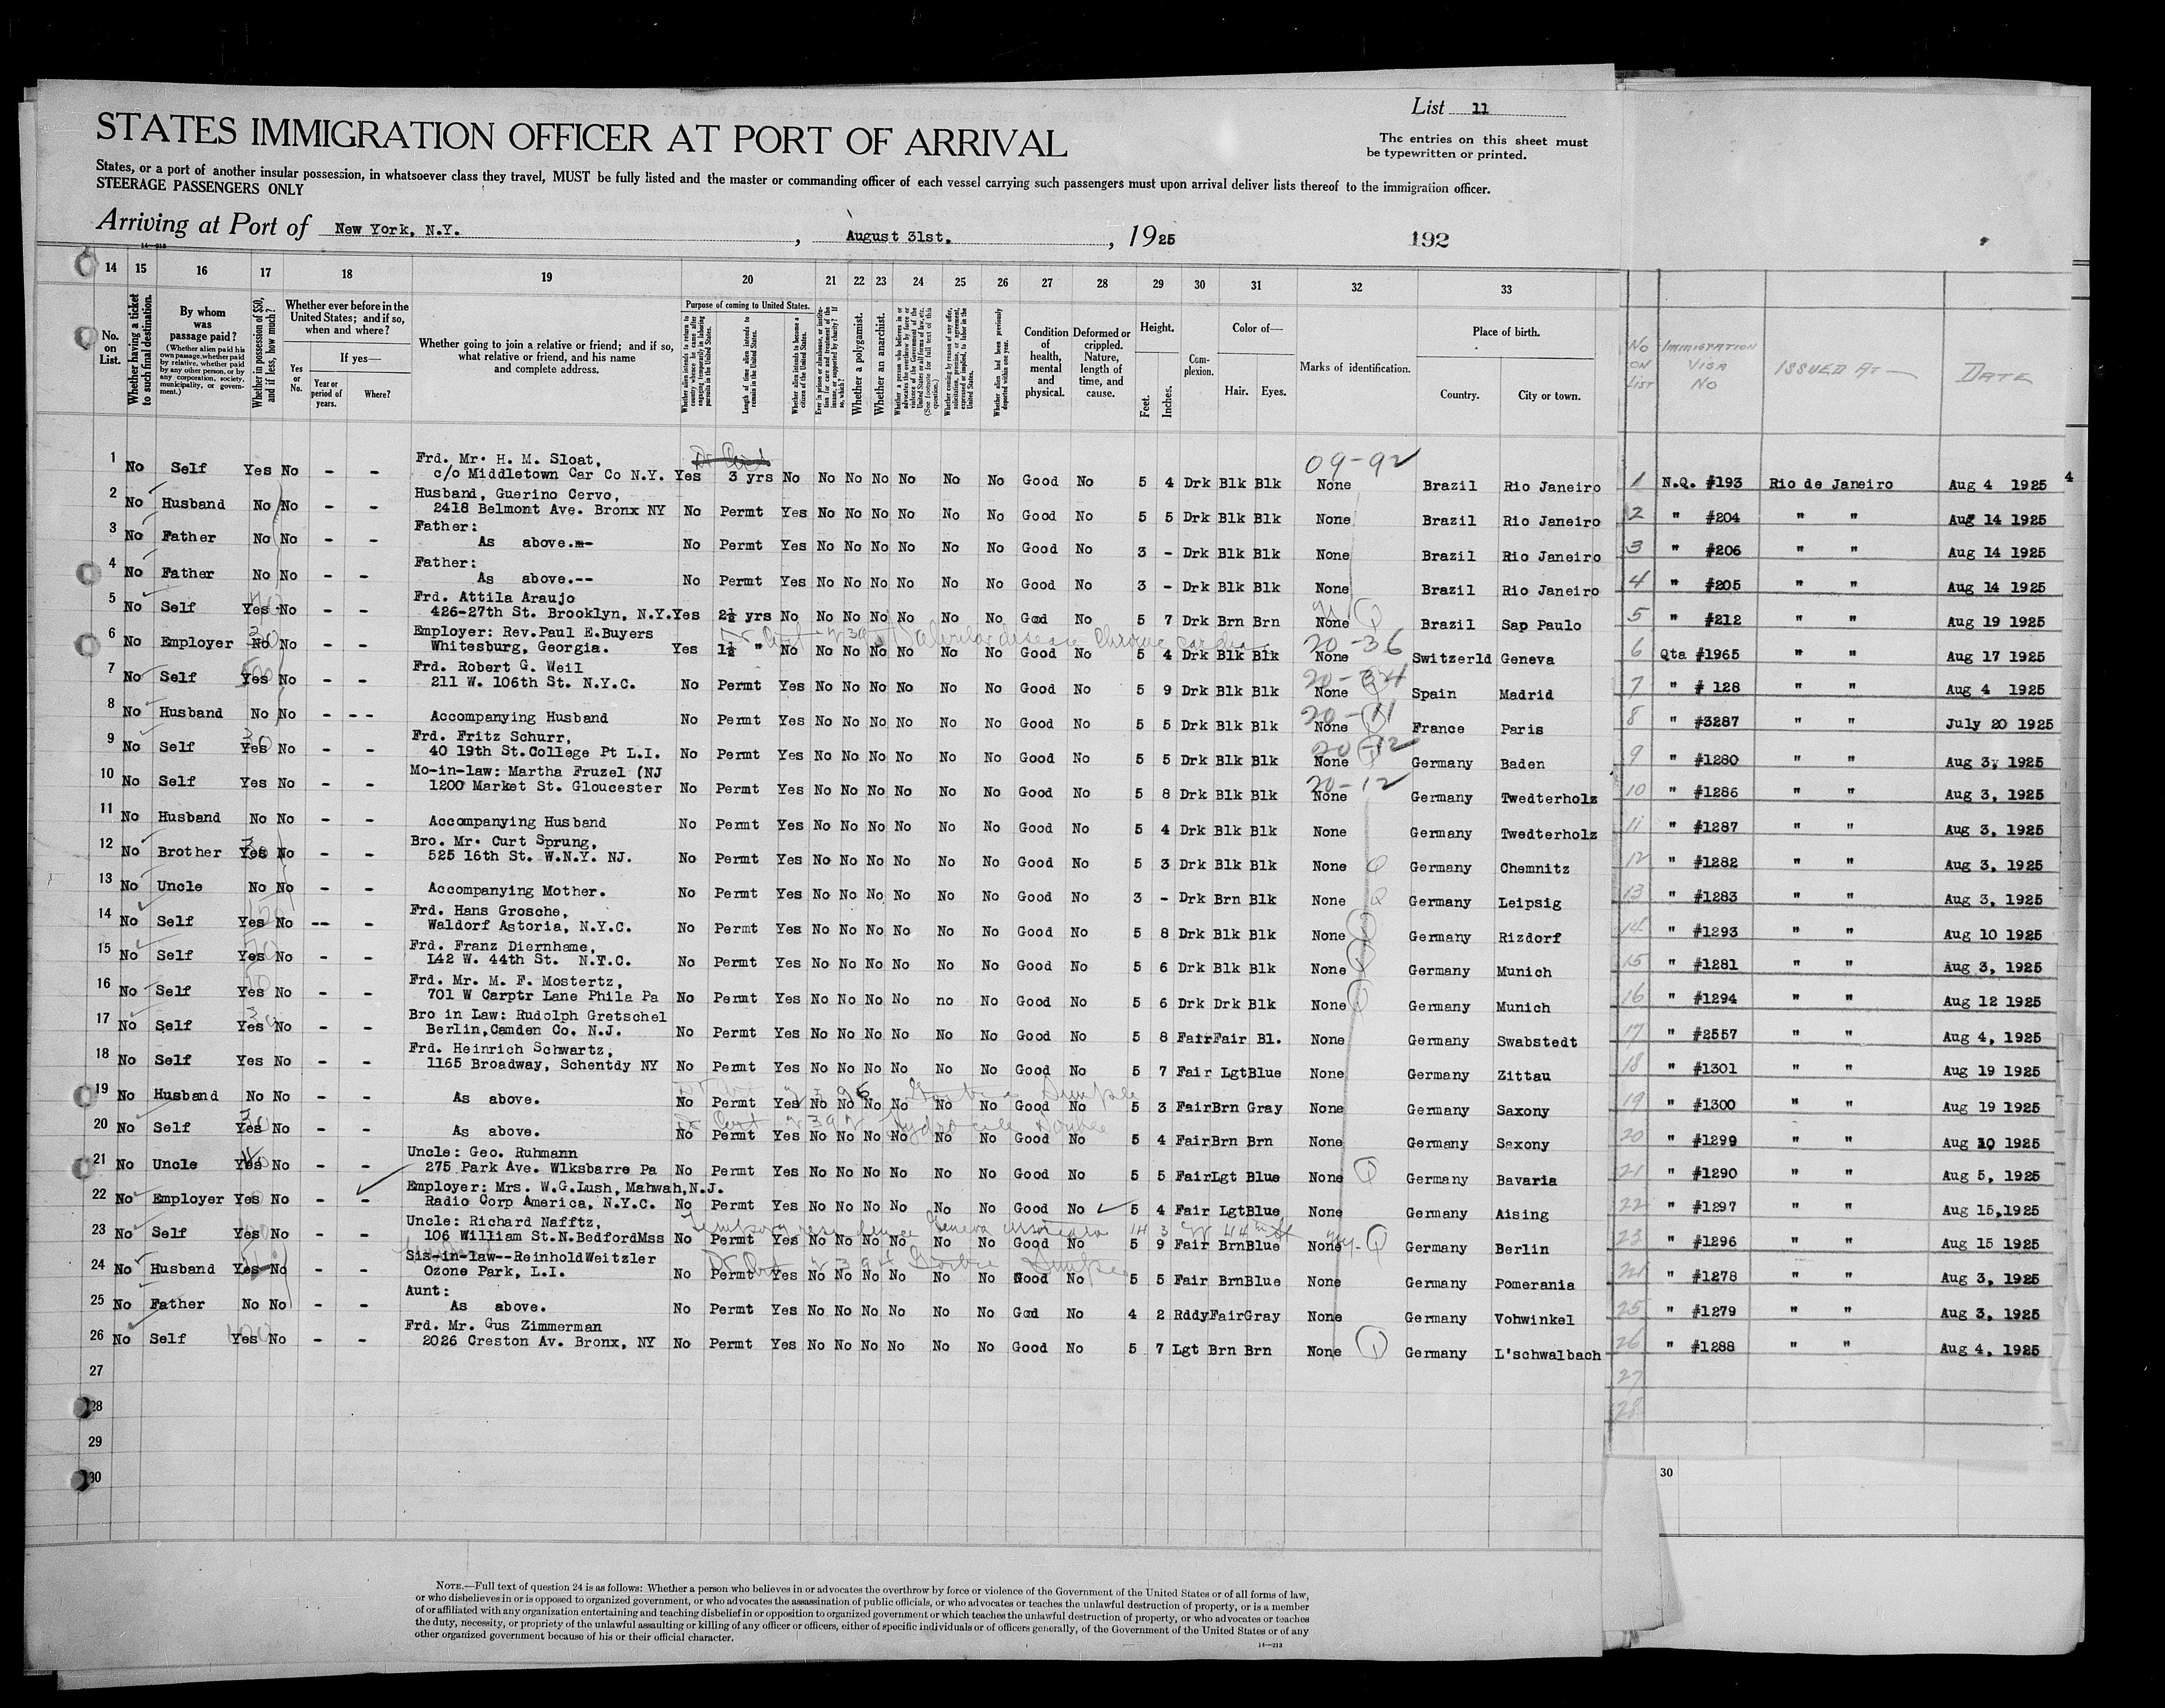 List 11
STATES IMMIGRATION OFFICER AT PORT OF ARRIVAL
The entries on this sheet must
be typewritten or printed.
States, or a port of another insular possession, in whatsoever class they travel, MUST be fully listed and the master or commanding officer of each vessel carrying such passengers must upon arrival deliver lists thereof to the immigration officer.
STEERAGE PASSENGERS ONLY
Arriving at Port of New York, N.Y. , August 31st. , 1925 192
14-213
14 15 16 17 18 19 20 21 22 23 24 25 26 27 28 29 30 31 32 33
No. on List.
Whether having a ticket to such final destination.
By whom was passage paid?
(Whether alien paid his own passage, whether paid by relative, whether paid by any other person, or by any corporation, society, municipality, or government.)
Whether in possession of $50, and if less, how much?
Whether ever before in the United States; and if so, when and where?
Yes or No.
If yes—
Year or period of years.
Where?
Whether going to join a relative or friend; and if so, what relative or friend, and his name and complete address.
Purpose of coming to United States.
Whether alien intends to return to country whence he came after engaging temporarily in laboring pursuits in the United States.
Length of time alien intends to remain in the United States.
Whether alien intends to become a citizen of the United States.
Whether a polygamist.
Whether an anarchist.
Condition of health, mental and physical.
Deformed or crippled. Nature, length of time, and cause.
Height.
Feet.
Inches.
Complexion.
Color of—
Hair. Eyes.
Marks of identification.
Place of birth.
Country. City or town.
No on List
Immigration Visa No
Issued at —
Date
09-92
1 No Self Yes No - - Frd. Mr. H. M. Sloat, c/o Middletown Car Co N.Y. Yes 3 yrs No No No No No No No Good No 5 4 Drk Blk Blk None Brazil Rio Janeiro 1 N.Q. #193 Rio de Janeiro Aug 4 1925 4
2 No Husband No No - - Husband, Guerino Cervo, 2418 Belmont Ave. Bronx NY No Permt Yes No No No No No No Good No 5 5 Drk Blk Blk None Brazil Rio Janeiro 2 " #204 " " Aug 14 1925
3 No Father No No - - Father: As above.-- No Permt Yes No No No No No No Good No 3 - Drk Blk Blk None Brazil Rio Janeiro 3 " #206 " " Aug 14 1925
4 No Father No No - - Father: As above.-- No Permt Yes No No No No No No Good No 3 - Drk Blk Blk None Brazil Rio Janeiro 4 " #205 " " Aug 14 1925
5 No Self Yes No - - Frd. Attila Araujo 426-27th St. Brooklyn, N.Y. Yes 2½ yrs No No No No No No No Good No 5 7 Drk Brn Brn None Brazil Sap Paulo 5 " #212 " " Aug 19 1925
6 No Employer No No - - Employer: Rev.Paul E.Buyers Whitesburg, Georgia. Yes 1½ " No No No No No No No Good No 5 4 Drk Blk Blk 20-36 None Switzerld Geneva 6 Qta #1965 " " Aug 17 1925
7 No Self Yes No - - Frd. Robert G. Weil 211 W. 106th St. N.Y.C. No Permt Yes No No No No No No Good No 5 9 Drk Blk Blk None Spain Madrid 7 " # 128 " " Aug 4 1925
8 No Husband No No - -- Accompanying Husband No Permt Yes No No No No No No Good No 5 5 Drk Blk Blk 20-11 None France Paris 8 " #3287 " " July 20 1925
9 No Self Yes No - - Frd. Fritz Schurr, 40 19th St.College Pt L.I. No Permt Yes No No No No No No Good No 5 5 Drk Blk Blk 20-12 None Germany Baden 9 " #1280 " " Aug 3, 1925
10 No Self Yes No - - Mo-in-law: Martha Fruzel (NJ 1200 Market St. Gloucester No Permt Yes No No No No No No Good No 5 8 Drk Blk Blk 20-12 None Germany Twedterholz 10 " #1286 " " Aug 3, 1925
11 No Husband No No - - Accompanying Husband No Permt Yes No No No No No No Good No 5 4 Drk Blk Blk None Germany Twedterholz 11 " #1287 " " Aug 3, 1925
12 No Brother Yes No - - Bro. Mr. Curt Sprung, 525 16th St. W.N.Y. NJ. No Permt Yes No No No No No No Good No 5 3 Drk Blk Blk None Germany Chemnitz 12 " #1282 " " Aug 3, 1925
13 No Uncle No No - - Accompanying Mother. No Permt Yes No No No No No No Good No 3 - Drk Brn Blk None Germany Leipsig 13 " #1283 " " Aug 3, 1925
14 No Self Yes No -- - Frd. Hans Grosche, Waldorf Astoria, N.Y.C. No Permt Yes No No No No No No Good No 5 8 Drk Blk Blk None Germany Rizdorf 14 " #1293 " " Aug 10 1925
15 No Self Yes No - - Frd. Franz Diernhame, 142 W. 44th St. N.Y.C. No Permt Yes No No No No No No Good No 5 6 Drk Blk Blk None Germany Munich 15 " #1281 " " Aug 3, 1925
16 No Self Yes No - - Frd. Mr. M. F. Mostertz, 701 W Carptr Lane Phila Pa No Permt Yes No No No No no No Good No 5 6 Drk Drk Blk None Germany Munich 16 " #1294 " " Aug 12 1925
17 No Self Yes No - - Bro in Law: Rudolph Gretschel Berlin,Camden Co. N.J. No Permt Yes No No No No No No Good No 5 8 Fair Fair Bl. None Germany Swabstedt 17 " #2557 " " Aug 4, 1925
18 No Self Yes No - - Frd. Heinrich Schwartz, 1165 Broadway, Schentdy NY No Permt Yes No No No No No No Good No 5 7 Fair Lgt Blue None Germany Zittau 18 " #1301 " " Aug 19 1925
19 No Husband No No - - As above. No Permt Yes No No No No No No Good No 5 3 Fair Brn Gray None Germany Saxony 19 " #1300 " " Aug 19 1925
20 No Self Yes No - - As above. No Permt Yes No No No No No No Good No 5 4 Fair Brn Brn None Germany Saxony 20 " #1299 " " Aug 10 1925
21 No Uncle Yes No - - Uncle: Geo. Ruhmann 275 Park Ave. Wlksbarre Pa No Permt Yes No No No No No No Good No 5 5 Fair Lgt Blue None Germany Bavaria 21 " #1290 " " Aug 5, 1925
22 No Employer Yes No - - Employer: Mrs. W.G.Lush, Mahwah,N.J. Radio Corp America, N.Y.C. No Permt Yes No No No No No No Good No 5 4 Fair Lgt Blue None Germany Aising 22 " #1297 " " Aug 15,1925
23 No Self Yes No - - Uncle: Richard Nafftz, 106 William St.N.BedfordMss No Permt Yes No No No No No No Good No 5 9 Fair Brn Blue None Germany Berlin 23 " #1296 " " Aug 15 1925
24 No Husband Yes No - - Sis-in-law--ReinholdWeitzler Ozone Park, L.I. No Permt Yes No No No No No No Good No 5 5 Fair Brn Blue None Germany Pomerania 24 " #1278 " " Aug 3, 1925
25 No Father No No - - Aunt: As above. No Permt Yes No No No No No No Good No 4 2 Rddy Fair Gray None Germany Vohwinkel 25 " #1279 " " Aug 3, 1925
26 No Self Yes No - - Frd. Mr. Gus Zimmerman 2026 Creston Av. Bronx, NY No Permt Yes No No No No No No Good No 5 7 Lgt Brn Brn None Germany L'schwalbach 26 " #1288 " " Aug 4, 1925
27 27
28 28
29
30 30
NOTE.—Full text of question 24 is as follows: Whether a person who believes in or advocates the overthrow by force or violence of the Government of the United States or of all forms of law,
or who disbelieves in or is opposed to organized government, or who advocates the assassination of public officials, or who advocates or teaches the unlawful destruction of property, or is a member
of or affiliated with any organization entertaining and teaching disbelief in or opposition to organized government or which teaches the unlawful destruction of property, or who advocates or teaches
the duty, necessity, or propriety of the unlawful assaulting or killing of any officer or officers, either of specific individuals or of officers generally, of the Government of the United States or of any
other organized government because of his or their official character.
14-213